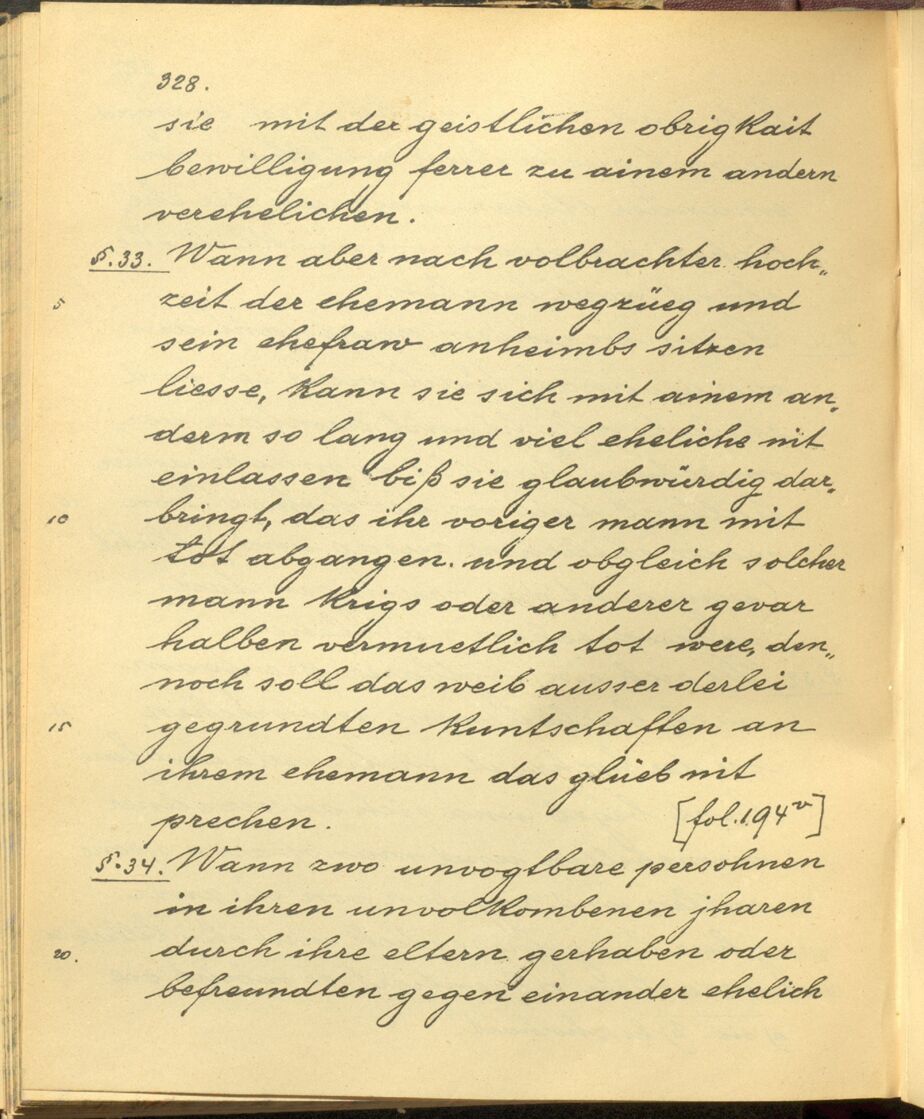 328.
sie mit der geistlichen obrigkait
bewilligung ferrer zu ainem andern
verehelichen.
§.33. Wann aber nach volbrachter hoch„
5 zeit der ehemann wegzüeg und
sein ehefraw anheimbs sitzen
liesse, kann sie sich mit ainem an„
derm so lang und viel eheliche nit
einlassen biß sie glaubwürdig dar„
10 bringt, das ihr voriger mann mit
tot abgangen. und obgleich solcher
mann krigs oder anderer gevar
halben vermuetlich tot were, den„
noch soll das weib ausser derlei
15 gegrundten kuntschaften an
ihrem ehemann das glüeb nit
prechen. [fol. 194v]
§.34. Wann zwo unvogtbare persohnen
in ihren unvolkombenen jharen
20. durch ihre eltern gerhaben oder
befreundten gegen einander ehelich